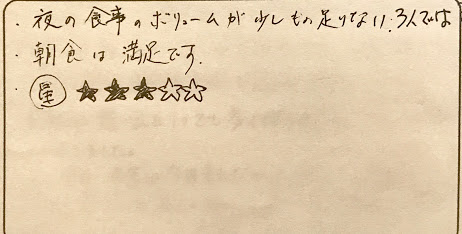 ・夜の食事のボリュームが少しもの足りない.3人では
・朝食は満足です.
・量 ★★★☆☆